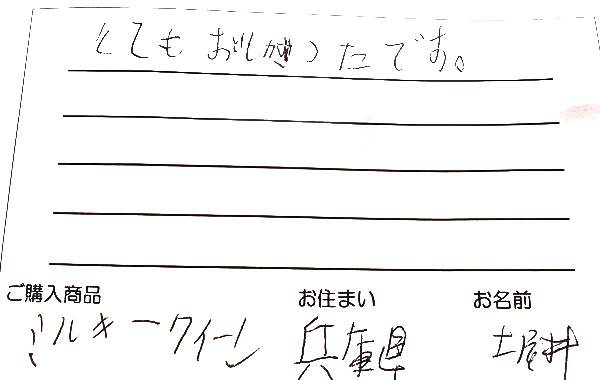 とてもおいしかったです。
ご購入商品 お住まい お名前
ミルキークイーン 兵庫県 土屋井